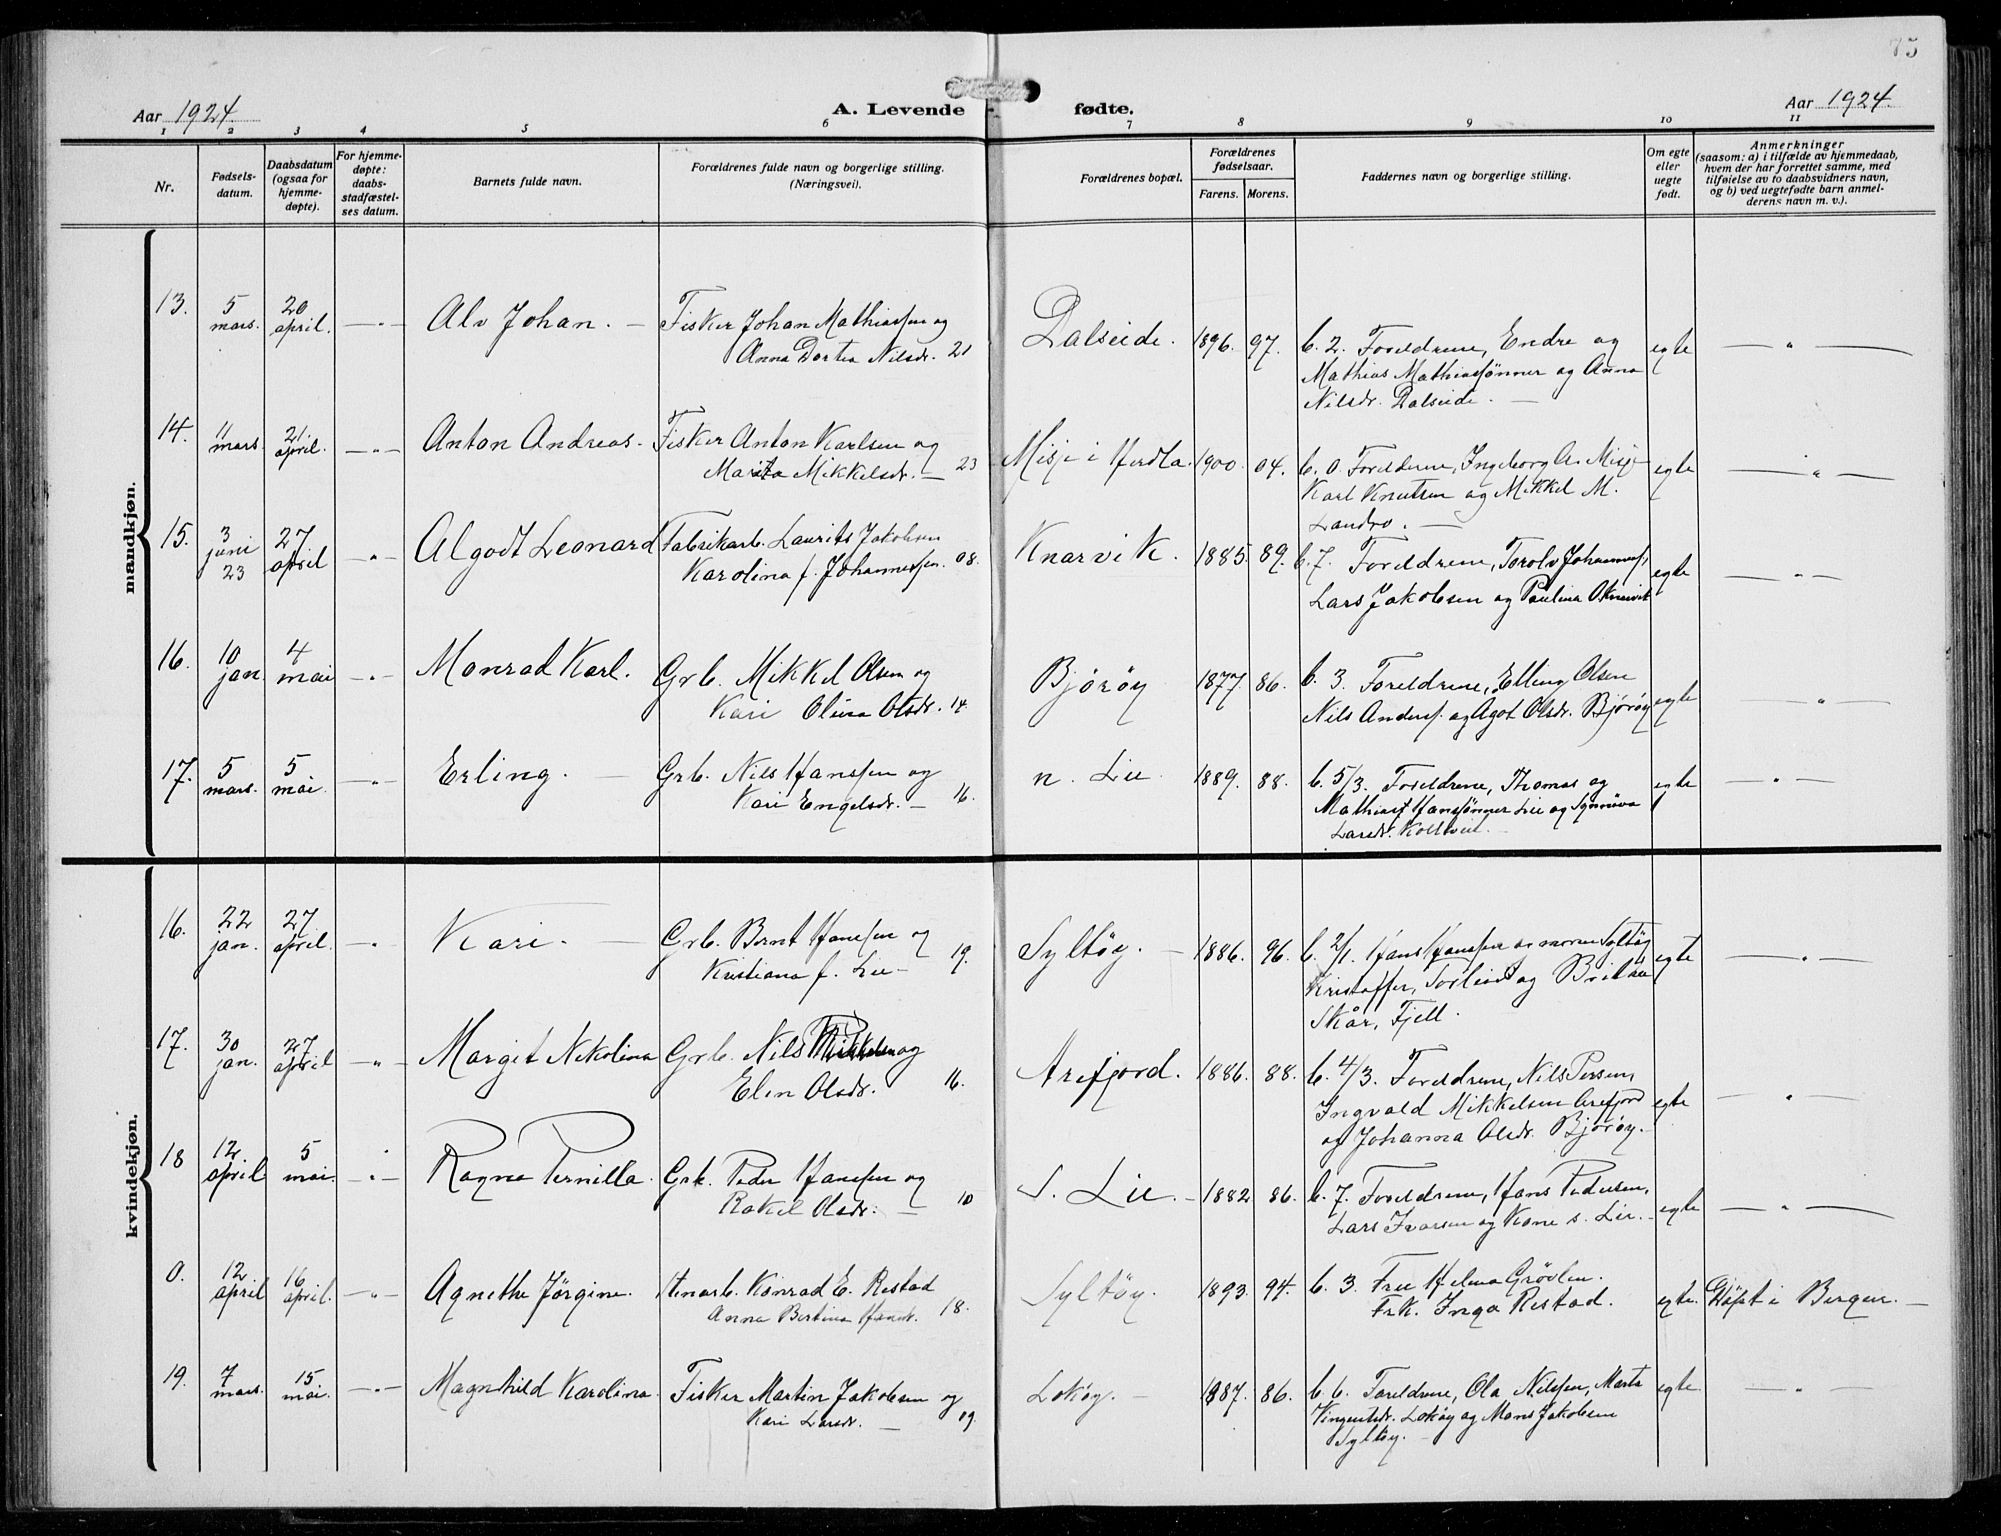 75
Aar 1924. A. Levende fødte. Aar 1924.
1 2 3 4 5 6 7 8 9 10 11
Nr.
Fødsels-
datum.
Daabsdatum
(ogsaa for
hjemme-
døpte).
For hjemme-
døpte:
daabs-
stadfæstel-
ses datum.
Barnets fulde navn.
Forældrenes fulde navn og borgerlige stilling.
(Næringsvei).
Forældrenes bopæl.
Forældrenes
fødselsaar.
Farens. Morens.
Faddernes navn og borgerlige stilling.
Om egte
eller
uegte
født.
Anmerkninger
(saasom: a) i tilfælde av hjemmedaab,
hvem der har forrettet samme, med
tilføielse av to daabsvidners navn,
og b) ved uegtefødte barn anmel-
derens navn m. v.).
mandkjøn.
13. 5 mars. 20 april. —"— Alv Johan. — Fisker Johan Mathiassen og
Anna Dortea Nilsdr. 21
Dalseide. 1896. 97. b. 2. Foreldrene, Endre og
Mathias Mathiassønner og Anna
Nilsdr. Dalseide. —
egte —"—
14. 11 mars 21 april. —"— Anton Andreas. Fisker Anton Karlsen og
Marita Mikkelsdr. — 23
Misje i Herdla. 1900. 04. b. 0. Foreldrene, Ingeborg A. Misje
Karl Knutsen og Mikkel M.
Landro. —
egte —"—
15. 3 juni 23 27 april —"— Algodt Leonard Fabrikarb. Laurits Jakobsen
Karolina f. Johannessen. 08.
Knarvik. 1885. 89. b. 7. Foreldrene, Torolv Johanness.,
Lars Jakobsen og Paulina O. Knarvik
egte —"—
16. 10 jan. 4 mai —"— Monrad Karl. Grb. Mikkel Olsen og
Kari Olina Olsdr. 14.
Bjørøy 1877. 86. b. 3. Foreldrene, Elling Olsen
Nils Anders. og Agot Olsdr. Bjørøy
egte —"—
17. 5 mars. 5 mai. —"— Erling. — Grb. Nils Hanssen og
Kari Engelsdr. — 16.
n. Lie. 1889. 88. b. 5/3. Foreldrene, Thomas og
Mathias Hanssønner Lie og Synnøva
Larsdr. Koltveit. —
egte —"—
kvindekjøn.
16. 22 jan. 27 april. —"— Kari. — Grb. Bernt Hanssen og
Kristiana f. Lie — 19.
Syltøy. — 1886. 96. b. 2/1. Hans Hanssen og moren Syltøy
Kristoffer, Torleiv og Brita
Skår, Fjell.
egte —"—
17. 30 jan. 27 april —"— Margit Nikolina Grb. Nils Mikkelsen og
Elen Olsdr. 16.
Arefjord. 1886. 88. b. 4/3. Foreldrene, Nils Persen,
Ingvald Mikkelsen Arefjord
og Johanna Olsdr. Bjørøy.
egte —"—
18 12 april. 5 mai. —"— Ragna Pernilla. Grb. Peder Hanssen og
Rakel Olsdr. — 10
S. Lie. — 1882 86. b. 7. Foreldrene, Hans Pedersen,
Lars Ivarsen og Kone s. Lie. —
egte —"—
0. 12 april 16 april. —"— Agnethe Jørgine. Konrad E. Restad
Anna Bertina Hansdr. 18.
Syltøy. 1893. 94. b. 3. Fru Helma Grøvlen.
Frk. Inga Restad.
egte. Døpt i Bergen. —
19. 7 mars. 15 mai. —"— Magnhild Karolina. Fisker Martin Jakobsen og
Kari Larsdr. — 09.
Lokøy. — 1887. 86. b. 6. Foreldrene, Ola Nilssen, Marta
Vingentsdr. Lokøy og Mons Jakobsen
Syltøy. —
egte. —"—